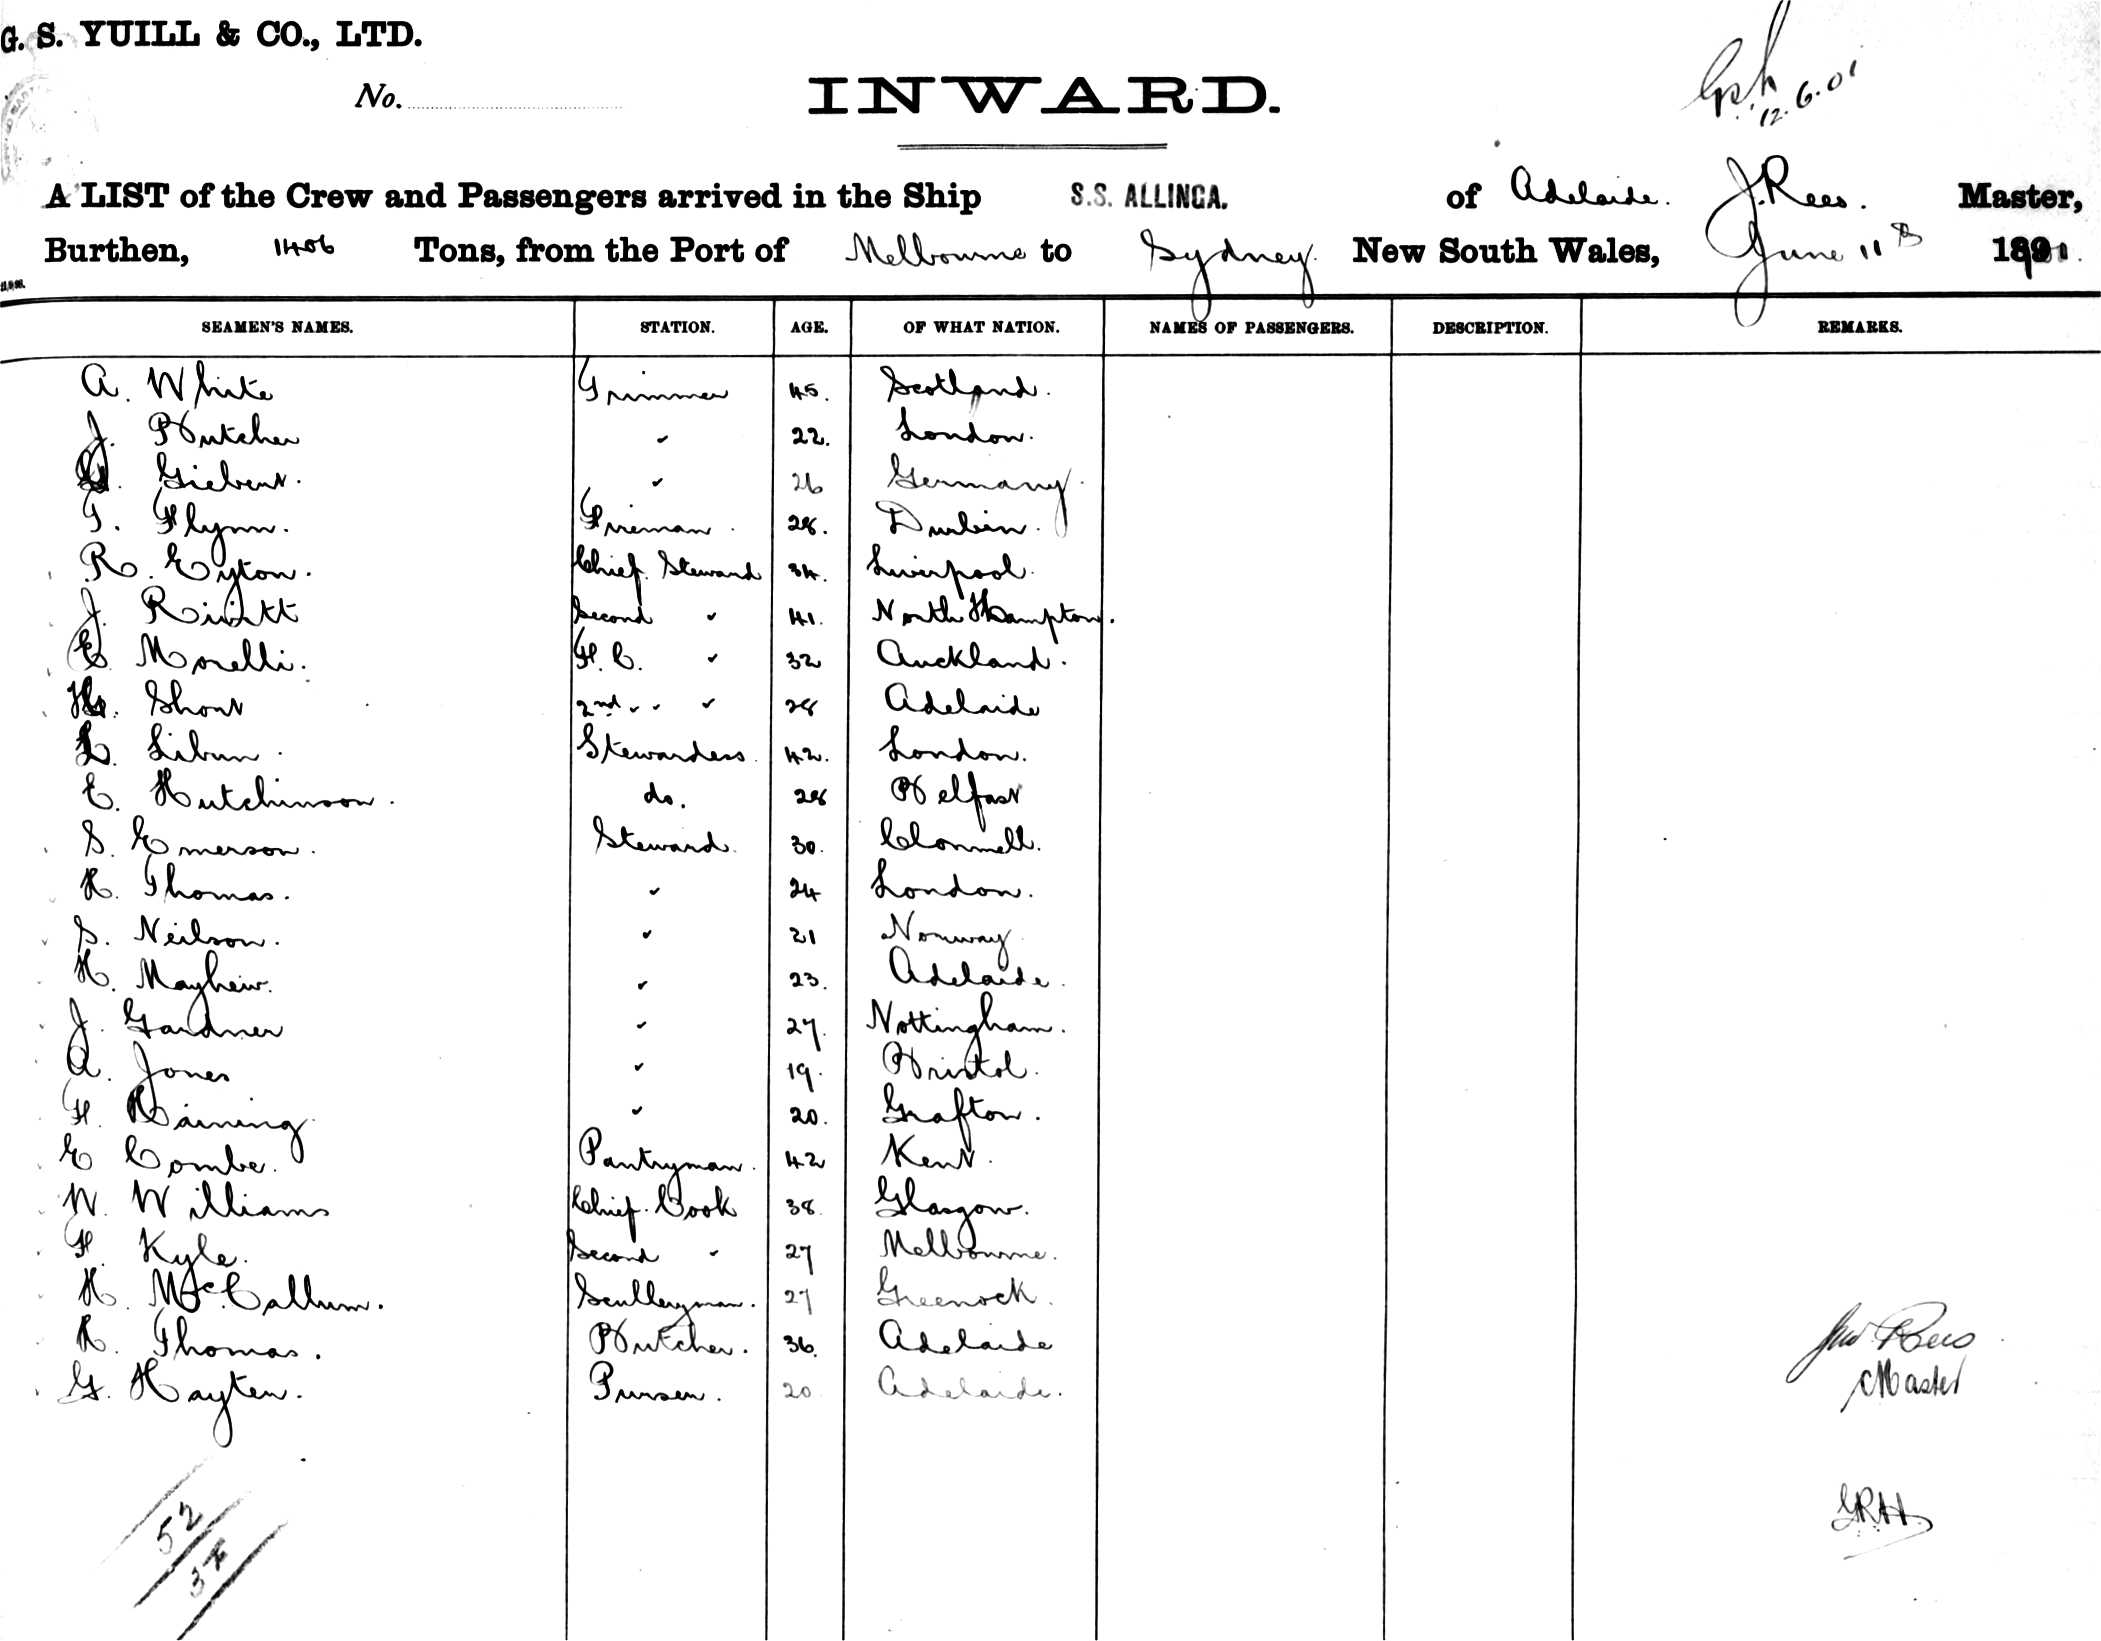 G. S. YUILL & CO., LTD.
No.
INWARD.
12.6.01
A LIST of the Crew and Passengers arrived in the Ship S.S. ALLINGA. of Adelaide. J. Rees. Master,
Burthen, 1406 Tons, from the Port of Melbourne to Sydney. New South Wales, June 11th 1901.
SEAMEN'S NAMES. STATION. AGE. OF WHAT NATION. NAMES OF PASSENGERS. DESCRIPTION. REMARKS.
A. White Trimmer 45. Scotland.
J. Butcher " 22. London.
Giebert. " 26 Germany.
T. Flynn. Fireman. 28. Durbin.
R. Eyton. Chief. Steward 34. Liverpool.
J. Rivitt Second " 41. North Hampton.
E. Morelli. F.C. " 32 Auckland.
Short 2nd " " " 28 Adelaide
L. Libun. Stewardess. 42. London.
E. Hutchinson. do. 28 Belfast
S. Emerson. Steward. 30. Clonmell.
H. Thomas. " 24 London.
S. Neilson. " 21 Norway
H. Mayhew. " 23. Adelaide.
J. Gardner " 27. Nottingham.
A. Jones " 19. Bristol.
F. Raining. " 20. Grafton.
E Combe. Pantryman. 42 Kent.
W. Williams Chief. Cook 38. Glasgow.
F. Kyle. Second " 27 Melbourne.
H. McCallum. Sculleryman. 27 Greenock.
R. Thomas. Butcher. 36. Adelaide
G. Hayter. Purser. 20 Adelaide.
Jno. Rees
Master
52
GRH